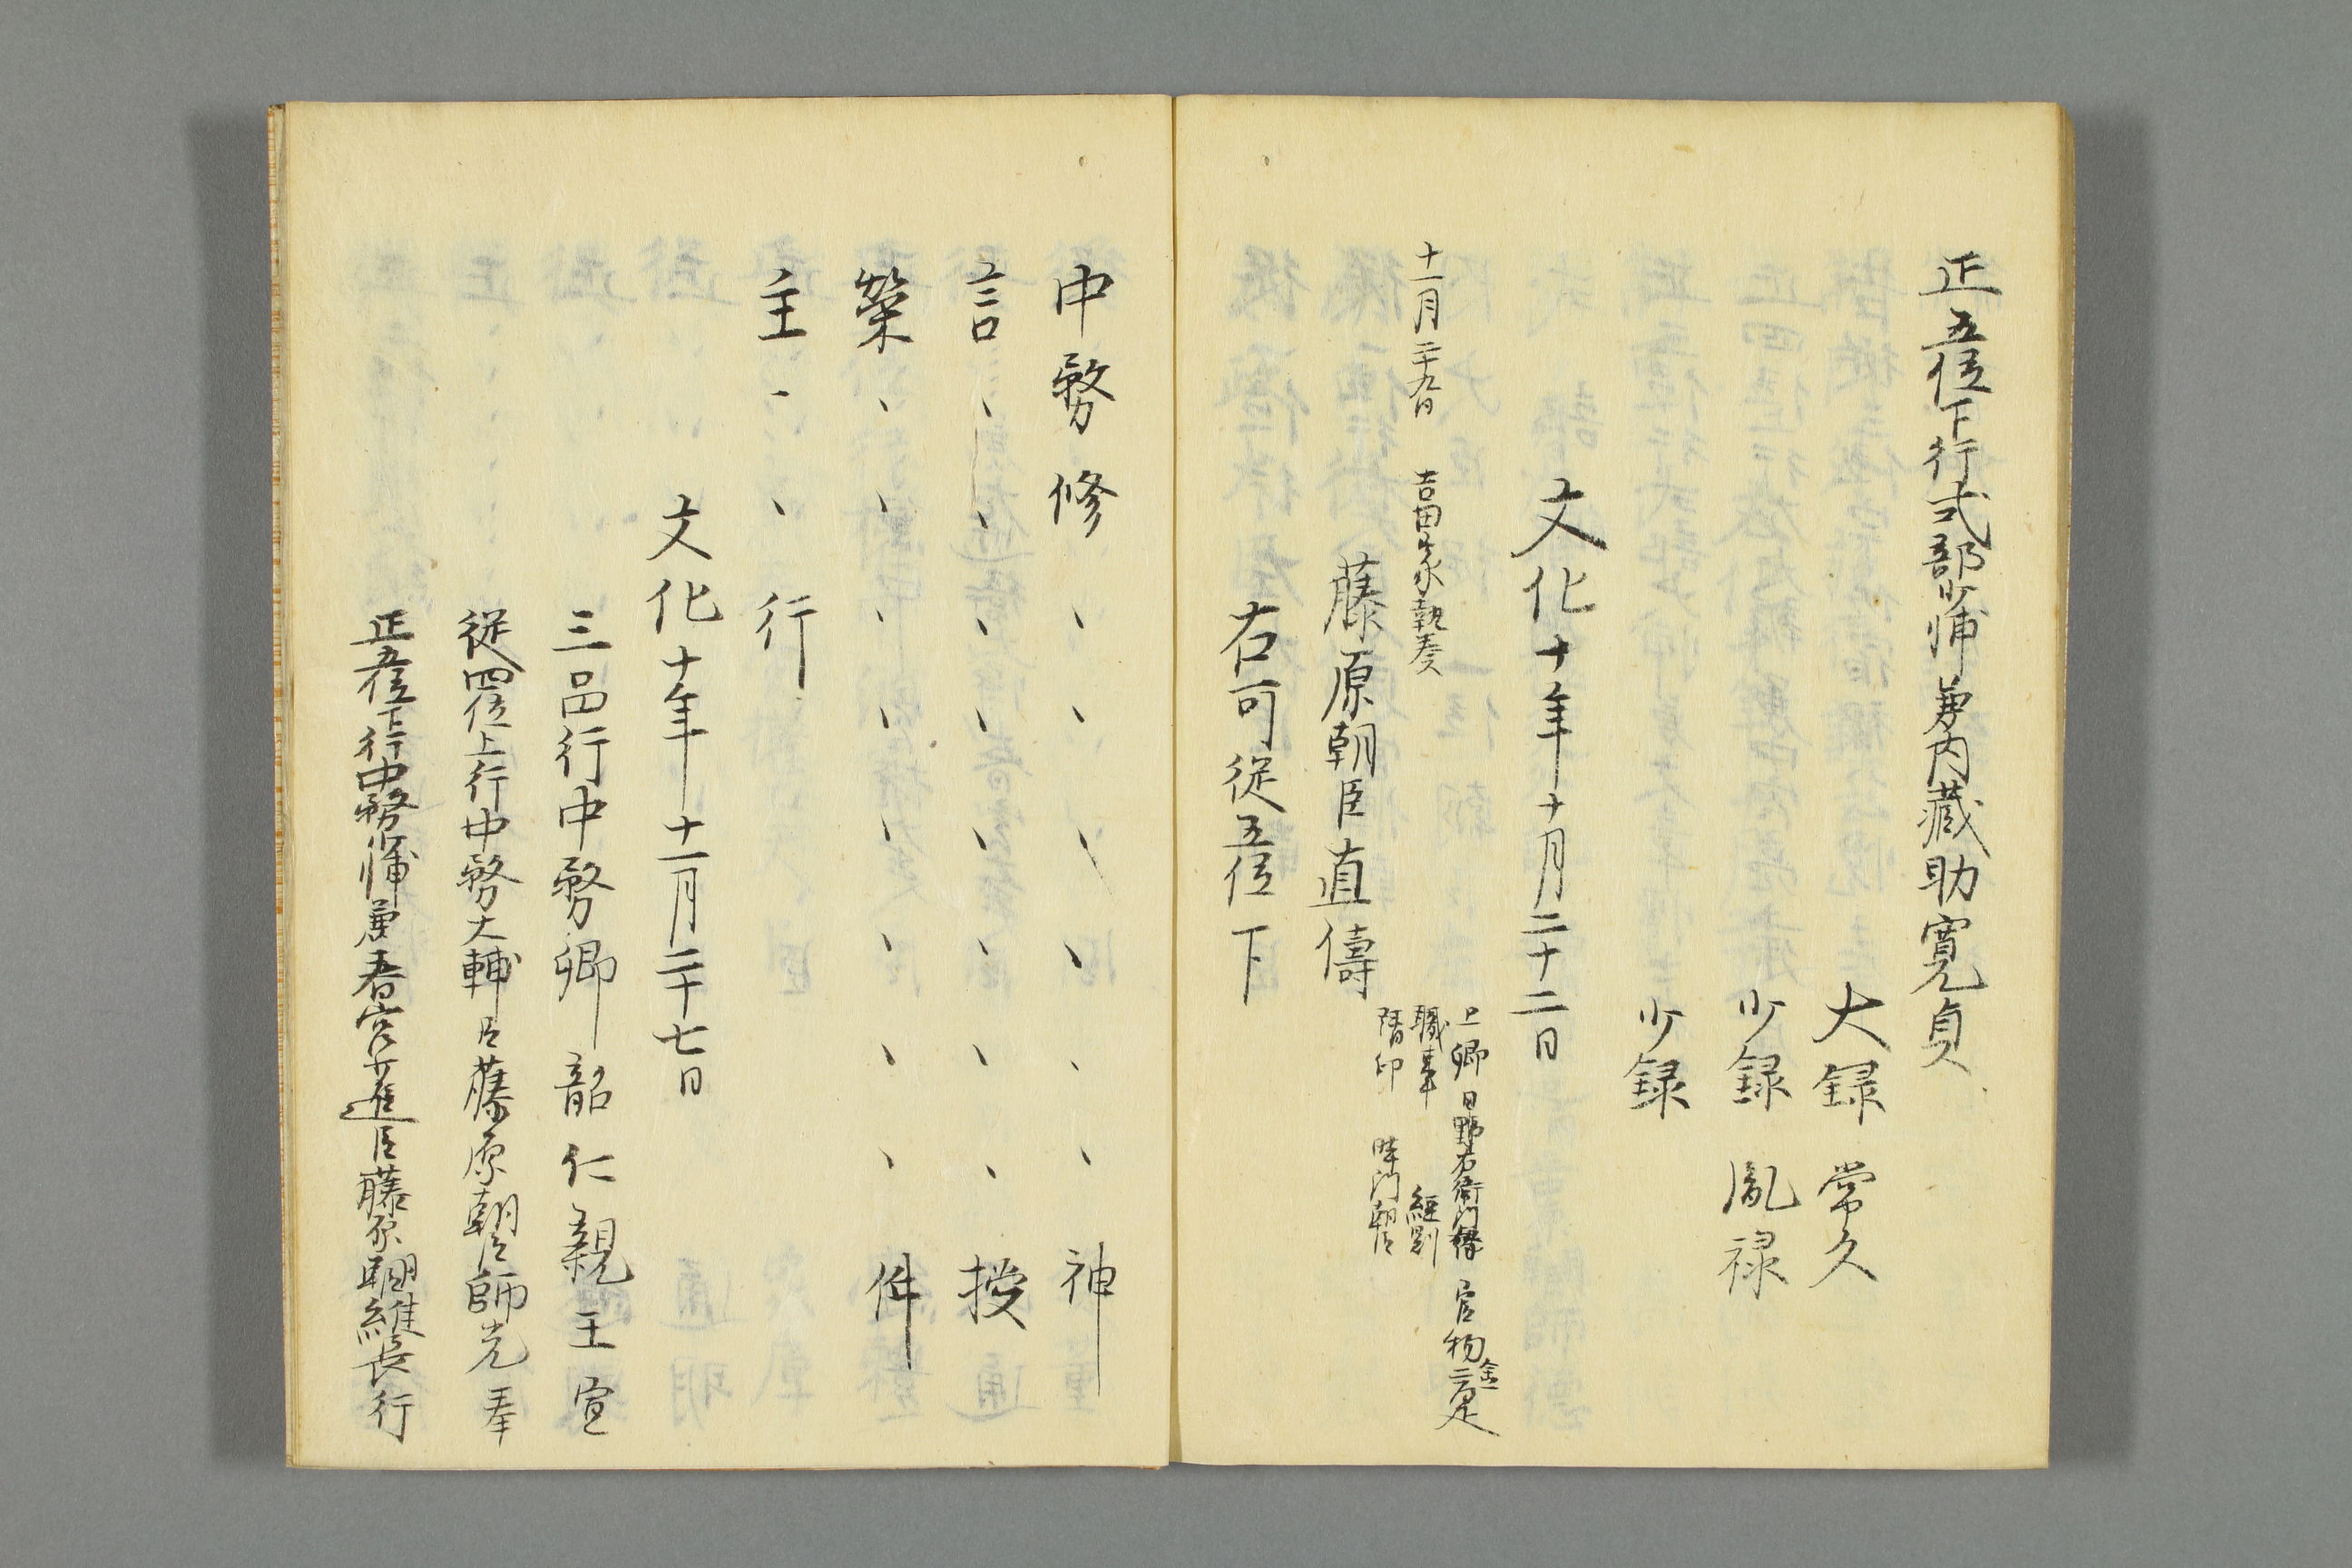 正五位下行式部少輔兼内蔵助寛貞
大録 常久
少録 胤禄
少録
文化十年十月二十二日
十一月二十九日 吉田家執奏
上卿 日野右衛門督 官物金二百疋
職事 経則
階印 
藤原朝臣直儔
右可従五位下
中務修、、、、、神
言、、、、、、、、授
榮、、、、、、、、件
主、、行
文化十年十一月二十七日
三品行中務卿韶仁親王宣
従四位上行中務大輔臣藤原朝臣師光奉
正五位下行中務少輔兼春宮少進臣藤原朝臣維長行